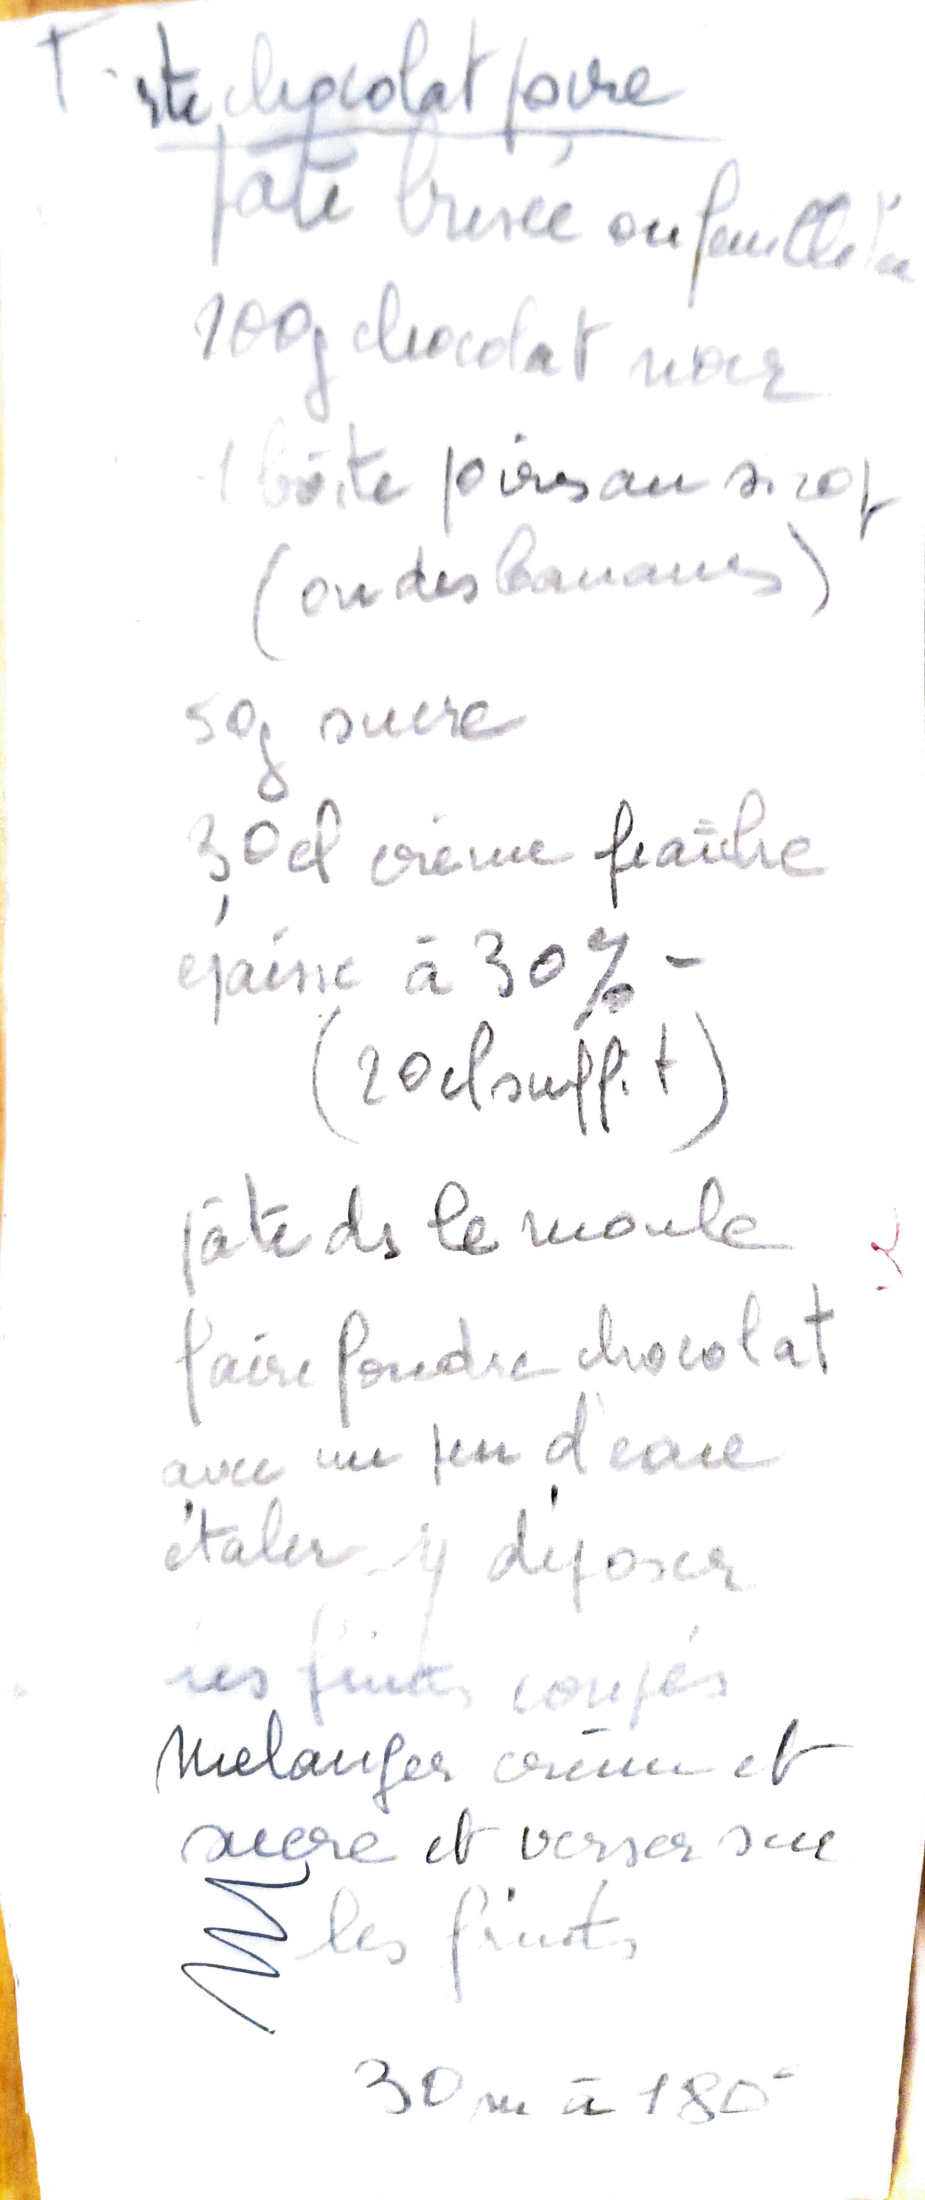 Tarte chocolat poire
pâte brisée ou feuilletée
200g chocolat noir
1 boîte poires au sirop
(ou des bananes)
50g sucre
30cl crème fraîche
épaisse à 30% -
(20cl suffit)
pâte ds le moule
faire fondre chocolat
avec un peu d'eau
étaler y déposer
les fruits coupés
Mélanger crème et
sucre et verser sur
les fruits
30m à 180°